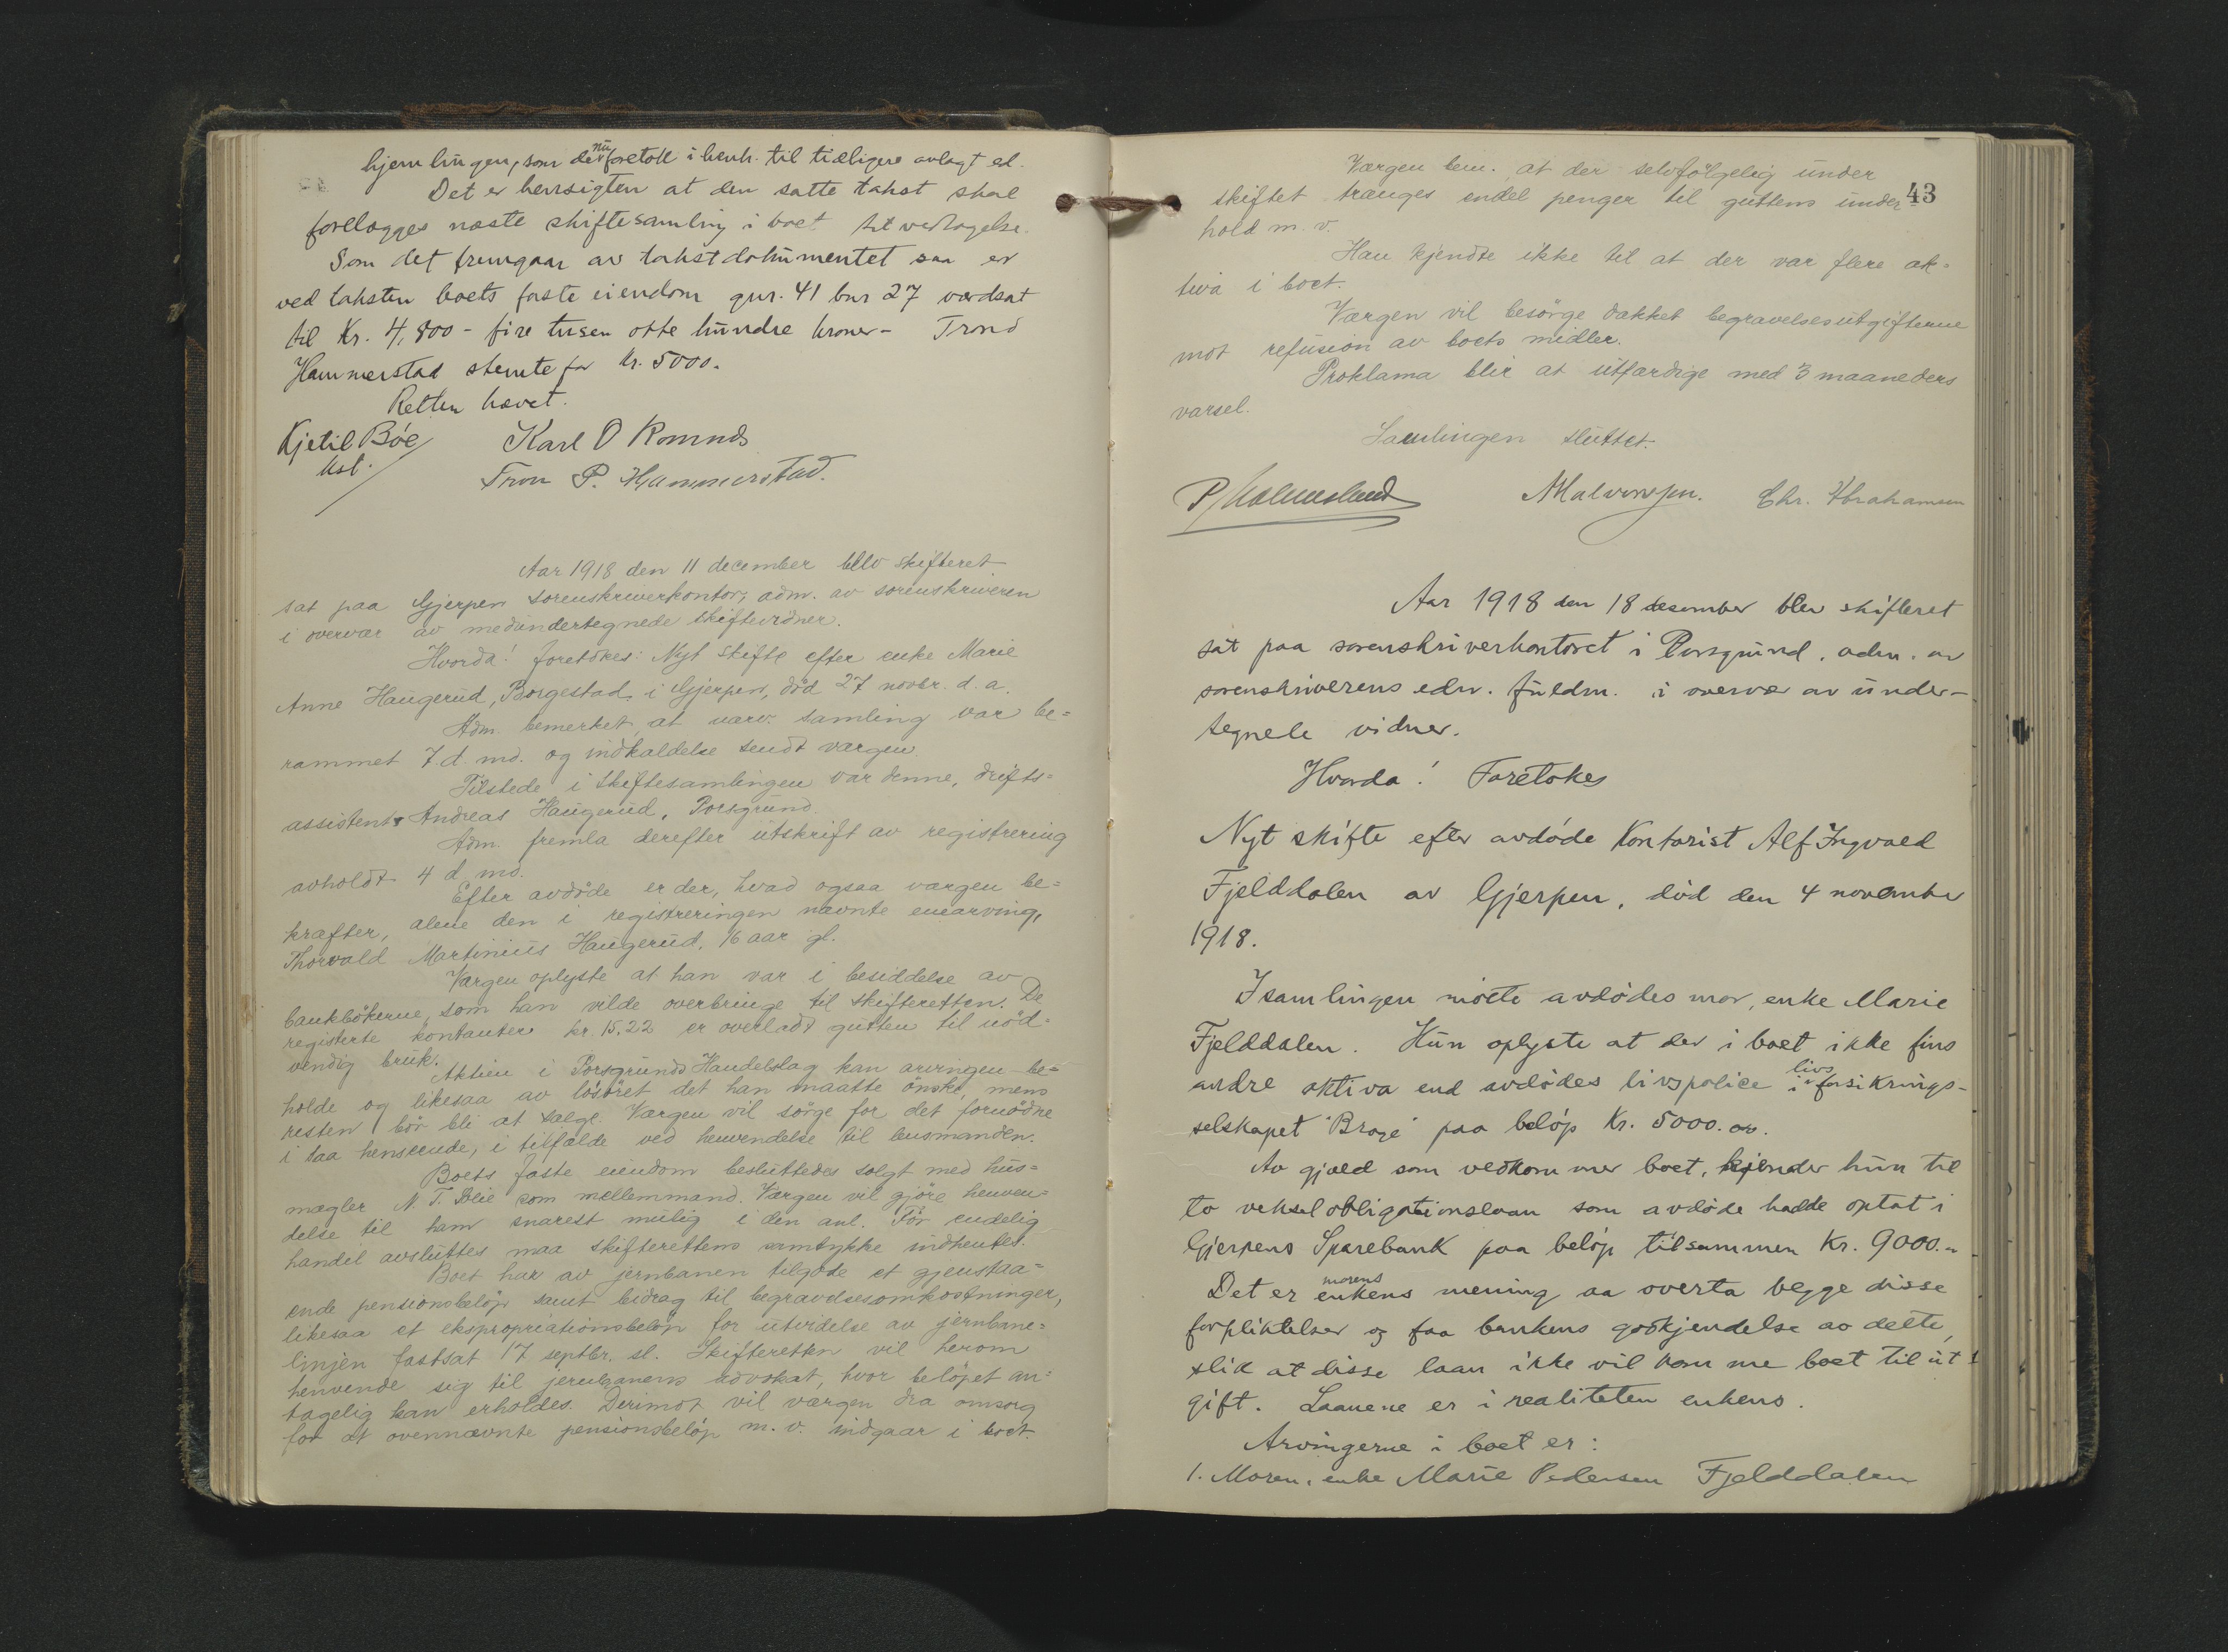 hjemlingen, som de nu foretok i henh. til tidligere avlagt ed.
Det er hensigten at den satte takst skal
forelægges næste skiftesamling i boet til vedtagelse.
Som det fremgaar av takstdokumentet saa er
ved taksten boets faste eiendom gnr. 41 bnr 27 værdsat
til Kr. 4,800 - fire tusen otte hundre kroner - Trond
Hammerstad stemte for Kr. 5000.
Retten hævet.
Kjetil Bóe Karl O
kst.
Tron P. Hammerstad.
Aar 1918 den 11 december blev skifteret
sat paa Gjerpen sorenskriverkontor, adm. av sorenskriveren
i overvær av medundertegnede skiftevidner.
Hvorda! foretokes: Nyt skifte efter enke Marie
Anne Haugerud, Borgestad i Gjerpen, död 27 novbr. d. a.
Adm. bemerket, at nærv. samling var be=
rammet 7 d. md. og indkaldelse sendt værgen.
Tilstede i skiftesamlingen var denne, drifts=
assistent Andreas Haugerud, Porsgrund.
Adm. fremla derefter utskrift av registrering
avholdt 4 d. md.
Efter avdöde er der, hvad ogsaa værgen be=
kræfter, alene den i registreringen nævnte enearving,
Thorvald Martinius Haugerud, 16 aar gl.
Værgen oplyste at han var i besiddelse av
bankbökerne, som han vilde overbringe til skifteretten. De
registerte kontanter kr. 15,22 er overladt gutten til nöd=
vendig bruk.
Aktien i Porsgrunds Handelslag kan arvingen be=
holde og likesaa av lösöret det han maatte önske, mens
resten bör bli at sælge. Værgen vil sörge for det fornödne
i saa henseende, i tilfælde ved henvendelse til lensmanden.
Boets faste eiendom besluttedes solgt med hus=
mægler N. T. Lie som mellemmand. Værgen vil gjöre henven=
delse til ham snarest mulig i den anl. För endelig
handel avsluttes maa skifterettens samtykke indhentes.
Boet har av jernbanen tilgode et gjenstaa=
ende pensionsbelöp samt bidrag til begravelsesomkostninger,
likesaa et ekspropriationsbelöp for utvidelse av jernbane=
linjen fastsat 17 septbr. sl. Skifteretten vil herom
henvende sig til jernbanens advokat, hvor belöpet an=
tagelig kan erholdes. Derimot vil værgen dra omsorg
for at ovennævnte pensionsbelöp m. v. indgaar i boet.
43
Værgen bem. at der selvfölgelig under
skiftet trænges endel penger til guttens under
hold m. v.
Han kjendte ikke til at der var flere ak=
tiva i boet.
Værgen vil besörge dækket begravelsesutgifterne
mot refusion av boets midler.
Proklama blir at utfærdige med 3 maaneders
varsel.
Samlingen sluttet.
P Holmesland AHalvorsen. Chr. Abrahamsen
Aar 1918 den 18 desember blev skifteret
sat paa sorenskriverkontoret i Porsgrund. adm. av
sorenskriverens edsv. fuldm. i overvær av under-
tegnede vidner.
Hvorda! Foretokes
Nyt skifte efter avdóde Kontorist Alf Ingvald
Fjelddalen av Gjerpen, dód den 4 november
1918.
I samlingen móete avdódes mor, enke Marie
Fjelddalen. Hun oplyste at der i boet ikke fins
andre aktiva end avdódes livspolice i livsforsikrings-
selskapet "Brage" paa belóp Kr. 5000.00.
Av gjæld som vedkommer boet, kjender hun til
to vekselobligationslaan som avdóde hadde optat i
Gjerpens Sparebank paa belóp tilsammen Kr. 9000.-
Det er enkens morens mening aa overta begge disse
forpliktelser og faa bankens godkjendelse av dette,
slik at disse laan ikke vil komme boet til ut-
gift. Laanene er i realiteten enkens.
Arvingerne i boet er:
1. Moren, enke Marie Pedersen Fjelddalen